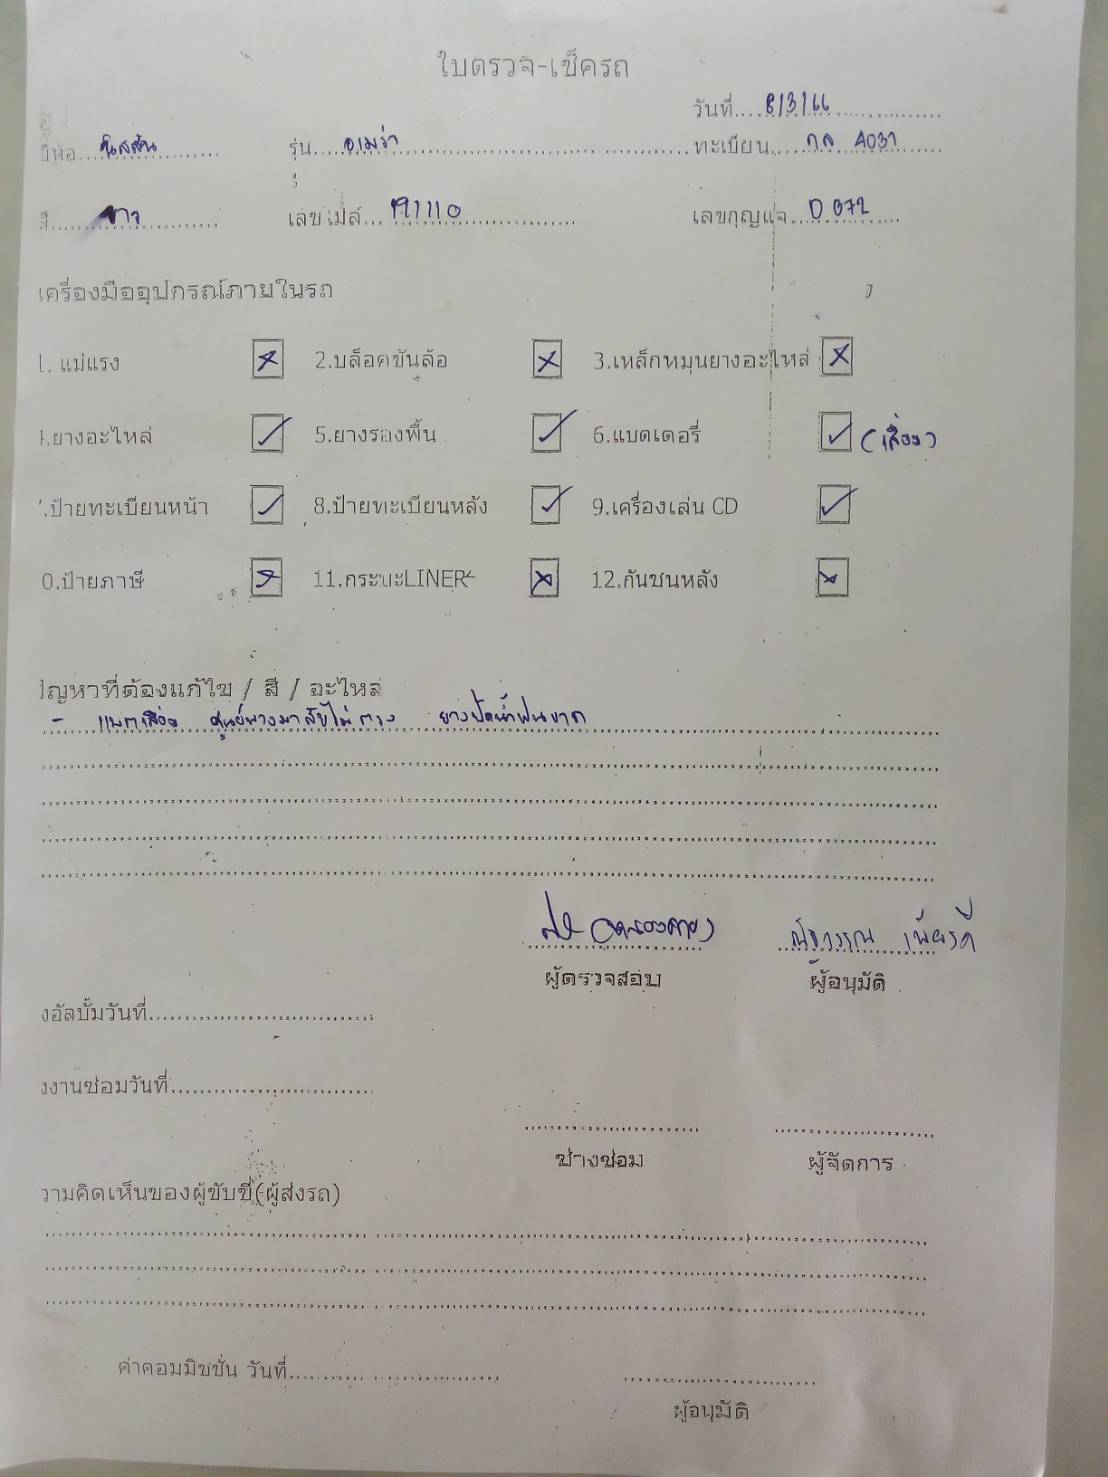 ใบตรวจ-เช็ครถ
วันที่....8/3/66....
ยี่ห้อ....นิสสัน.... รุ่น....อเมร่า.... ทะเบียน....กล 4031....
สี....ขาว.... เลขไมล์....191110.... เลขกุญแจ....0072....
เครื่องมืออุปกรณ์ภายในรถ
1. แม่แรง ✗ 2.บล็อคขันล้อ ✗ 3.เหล็กหมุนยางอะไหล่ ✗
4.ยางอะไหล่ ✓ 5.ยางรองพื้น ✓ 6.แบตเตอรี่ ✓ (เสื่อม)
7.ป้ายทะเบียนหน้า ✓ 8.ป้ายทะเบียนหลัง ✓ 9.เครื่องเล่น CD ✓
10.ป้ายภาษี ✗ 11.กระบะLINER ✗ 12.กันชนหลัง ✗
ปัญหาที่ต้องแก้ไข / สี / อะไหล่
- แบตเสื่อม ศูนย์พวงมาลัยไม่ตรง ยางปัดน้ำฝนขาด
(หนองคาย) เพียรดี
ผู้ตรวจสอบ ผู้อนุมัติ
งอัลบั้มวันที่....
งงานซ่อมวันที่....
ช่างซ่อม ผู้จัดการ
วามคิดเห็นของผู้ขับขี่(ผู้ส่งรถ)
ค่าคอมมิชชั่น วันที่....
ผู้อนุมัติ